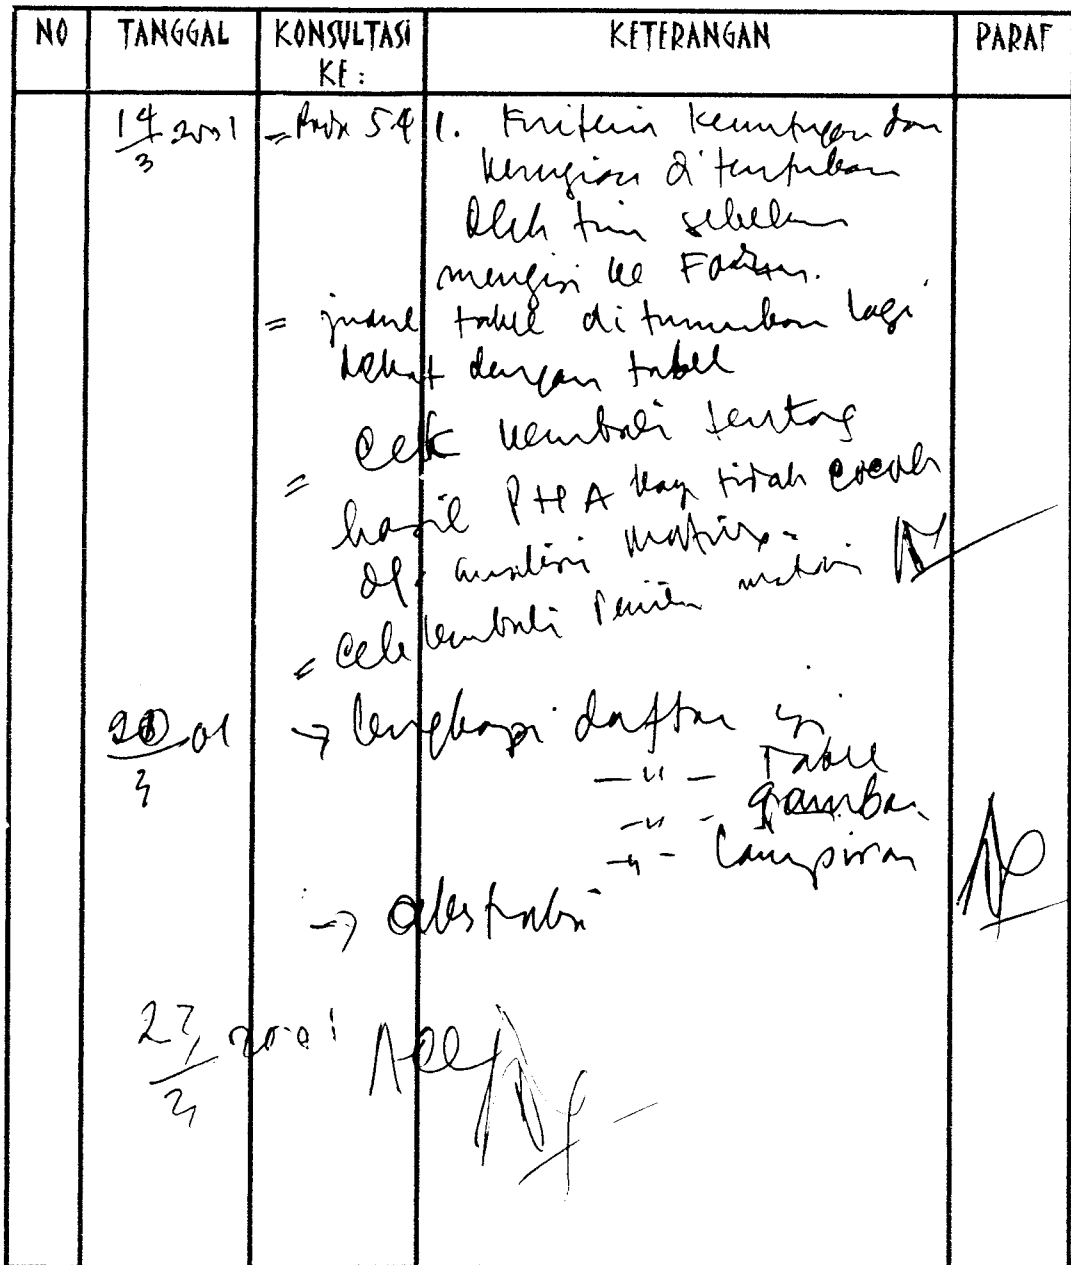 NO TANGGAL KONSULTASI KE : KETERANGAN PARAF
14/3 2001 = 54 1. Kriteria keuntungan dan
kerugian ditentukan
oleh tim sebelum
mengisi ke
= judul tabel diturunkan lagi
dekat dengan tabel
= Cek kembali tentang
hasil PHA yang tidak cocok
dg. analisis matrix.
= Cek kembali matrix
20/3 01 → lengkapi daftar isi
—〃— Tabel
—〃— gambar
—〃— lampiran
→ abstraksi
27/3 2001 Acc